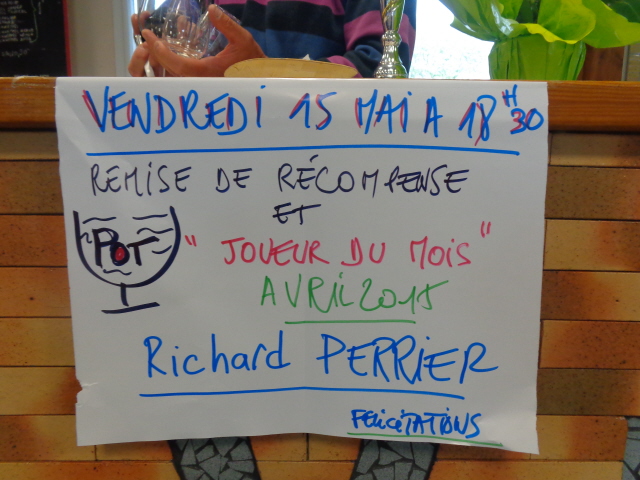 VENDREDI 15 MAI A 18 H 30
REMISE DE RÉCOMPENSE
ET
POT
" JOUEUR DU MOIS "
AVRIL 2015
Richard PERRIER
FELICITATIONS